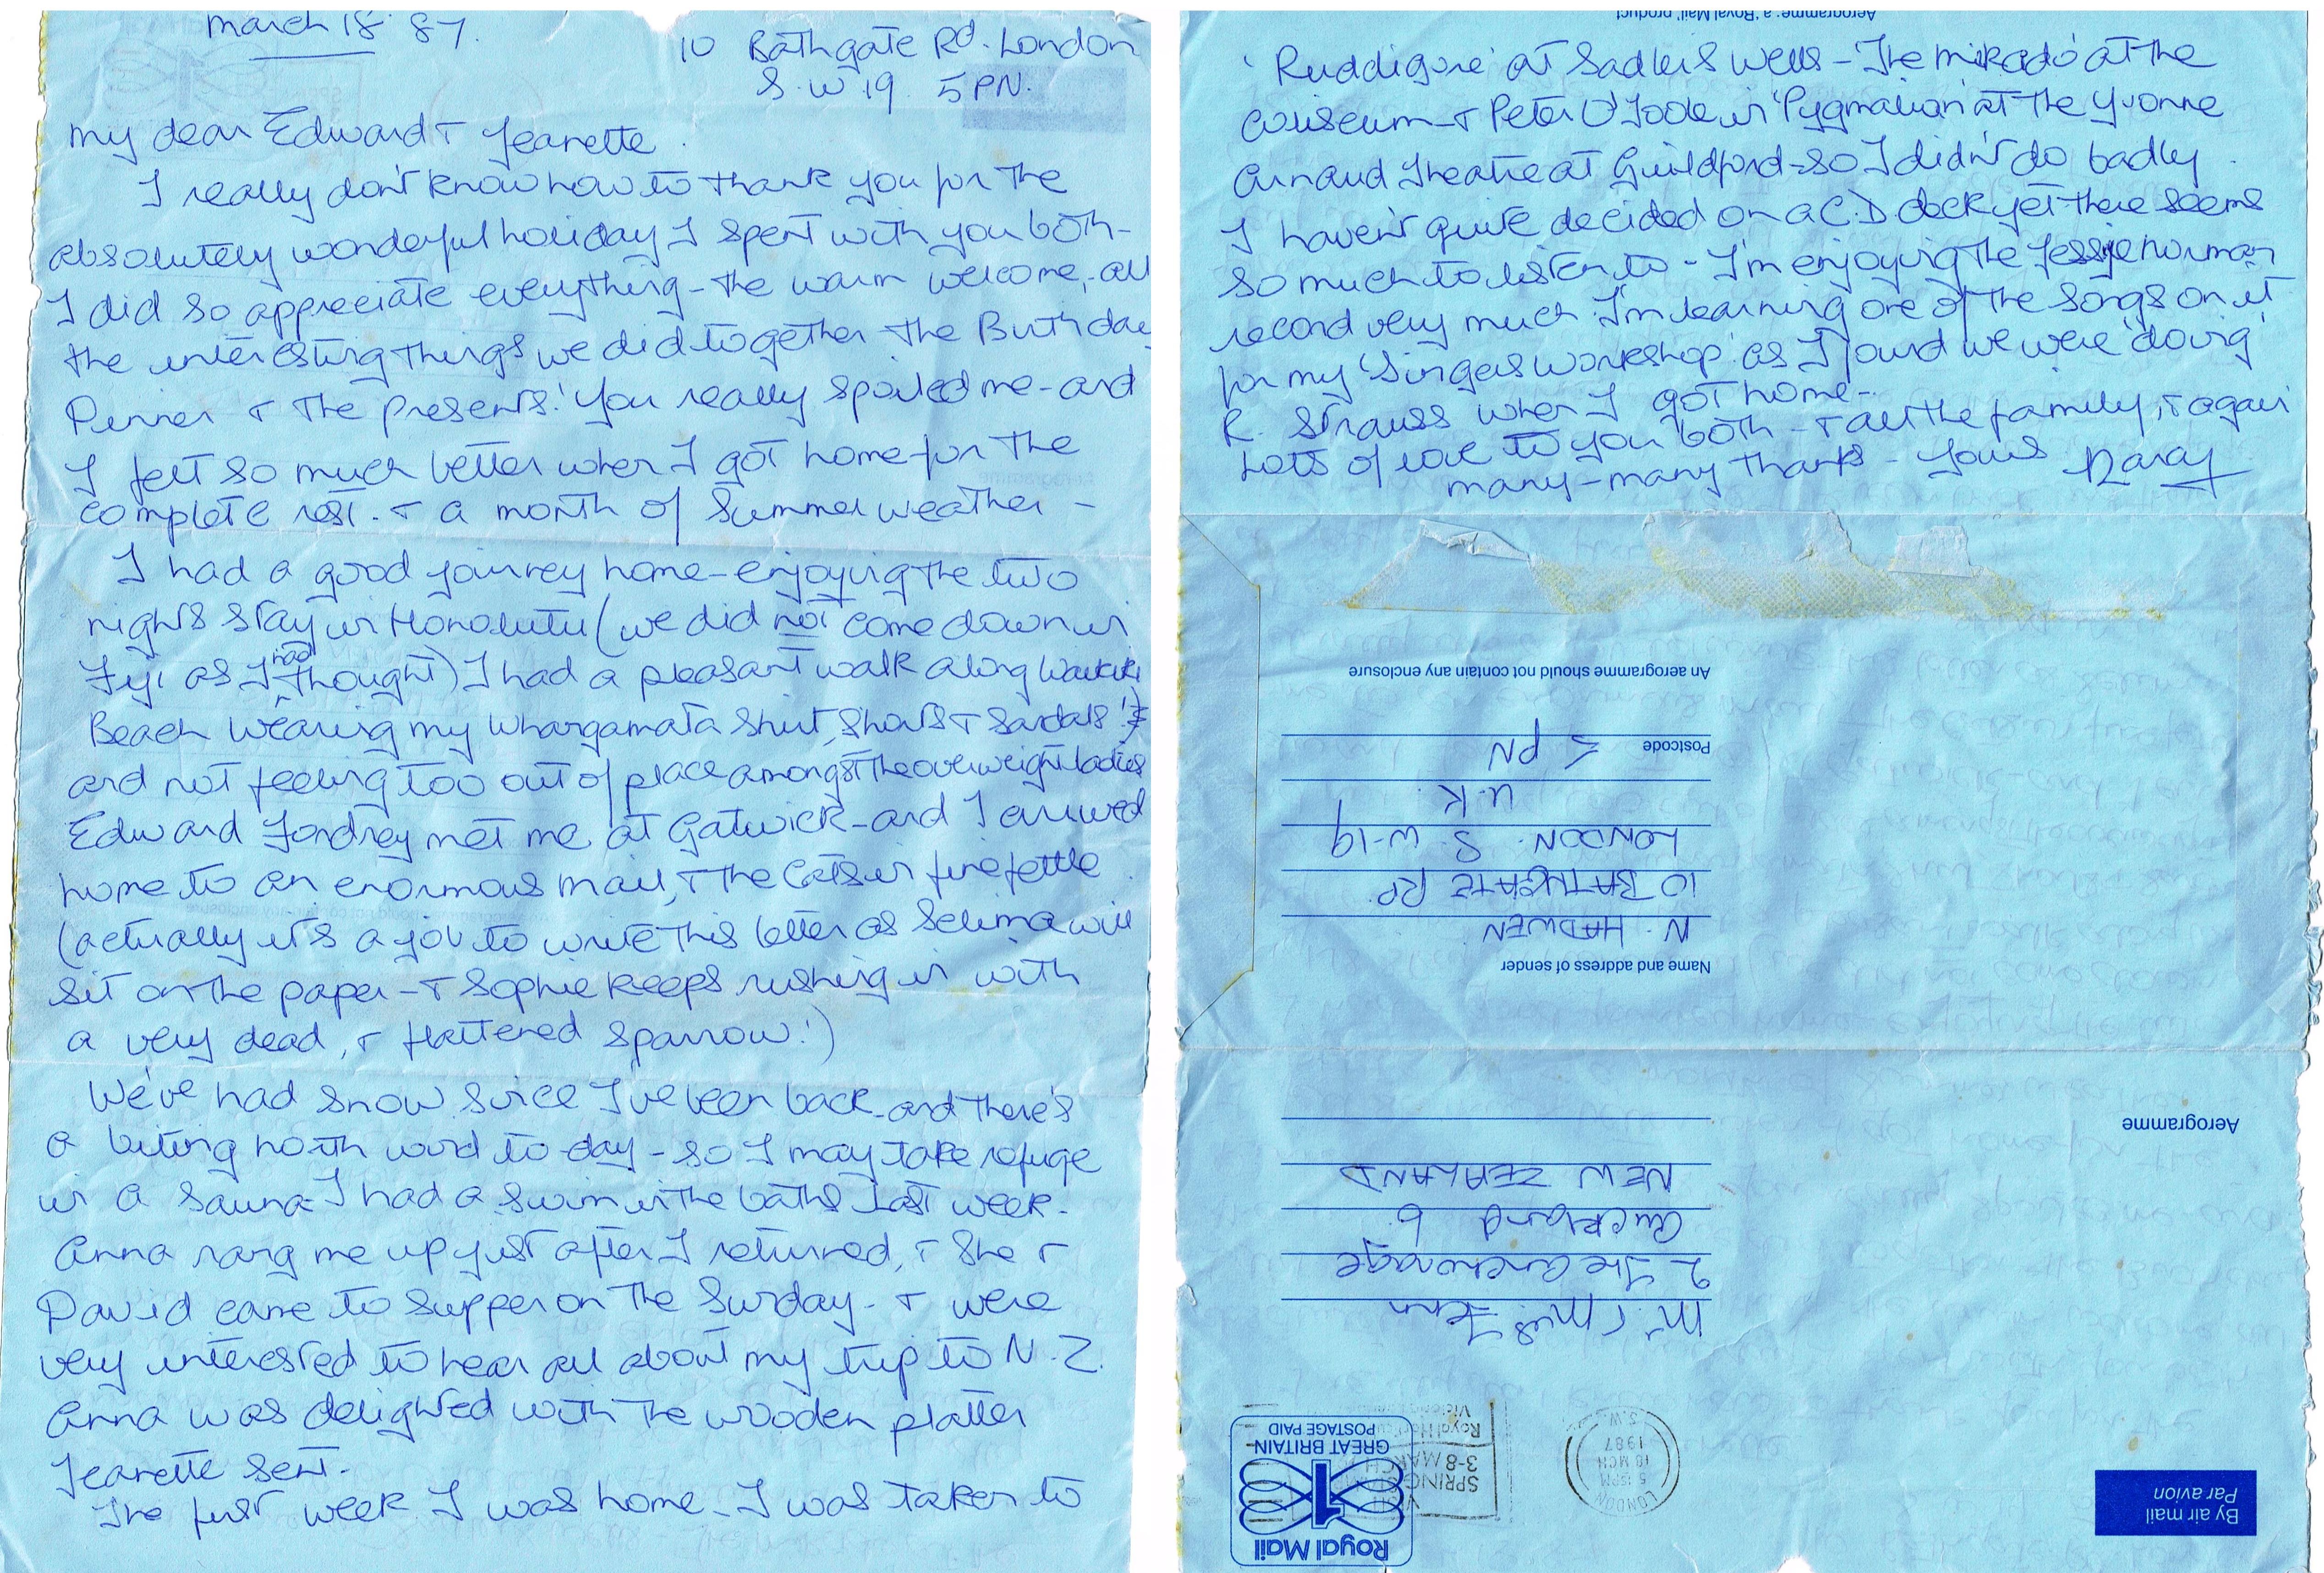 March 18 87.
10 Bathgate Rd. London
S.W.19 5PN.
My dear Edward + Jeanette.
I really don't know how to thank you for the
absolutely wonderful holiday I spent with you both -
I did so appreciate everything - the warm welcome, - all
the interesting things we did together the Birthday
Dinner + the presents! You really spoiled me - and
I felt so much better when I got home for the
complete rest. + a month of Summer weather -
I had a good journey home - enjoying the two
nights stay in Honolulu (we did not come down in
Fiji as I had thought) I had a pleasant walk along Waikiki
Beach wearing my Whangamata shirt, shorts + sandals!)
and not feeling too out of place amongst the overweight ladies
Edward met me at Gatwick - and I arrived
home to an enormous mail, + the Cats in fine fettle
(actually it's a job to write this letter as Selima will
sit on the paper - + Sophie keeps rushing in with
a very dead, + flattened sparrow!)
We've had snow since I've been back - and there's
a biting north wind to-day - so I may take refuge
in a sauna - I had a swim in the baths last week -
Anna rang me up just after I returned, + she +
David came to supper on the Sunday - + were
very interested to hear all about my trip to N.Z.
Anna was delighted with the wooden platter
Jeanette sent.
The first week I was home - I was taken to
Aerogramme: a 'Royal Mail' product
'Ruddigore' at Sadlers Wells - 'The Mikado' at the
Coliseum - + Peter O'Toole in 'Pygmalion' at the Yvonne
Arnaud Theatre at Guildford - so I didn't do badly.
I haven't quite decided on a C.D deck yet - there seems
so much to listen to - I'm enjoying the Jessye Norman
record very much I'm learning one of the songs on it
for my 'Singers Workshop' as I found we were 'doing'
R. Strauss when I got home -
Lots of love to you both - + all the family, + again
many - many thanks - Yours
An aerogramme should not contain any enclosure
Postcode
5 PN
U.K.
LONDON. S. W-19
10 BATHGATE RD.
N. HADWEN
Name and address of sender
Aerogramme
NEW ZEALAND
Auckland 6.
2 The Anchorage
Mr + Mrs Fenn
Royal Mail
1
GREAT BRITAIN
POSTAGE PAID
VISIT
SPRING
3-8 MARCH
Royal
LONDON
5 PM
18 MCH
1987
S.W.
By air mail
Par avion